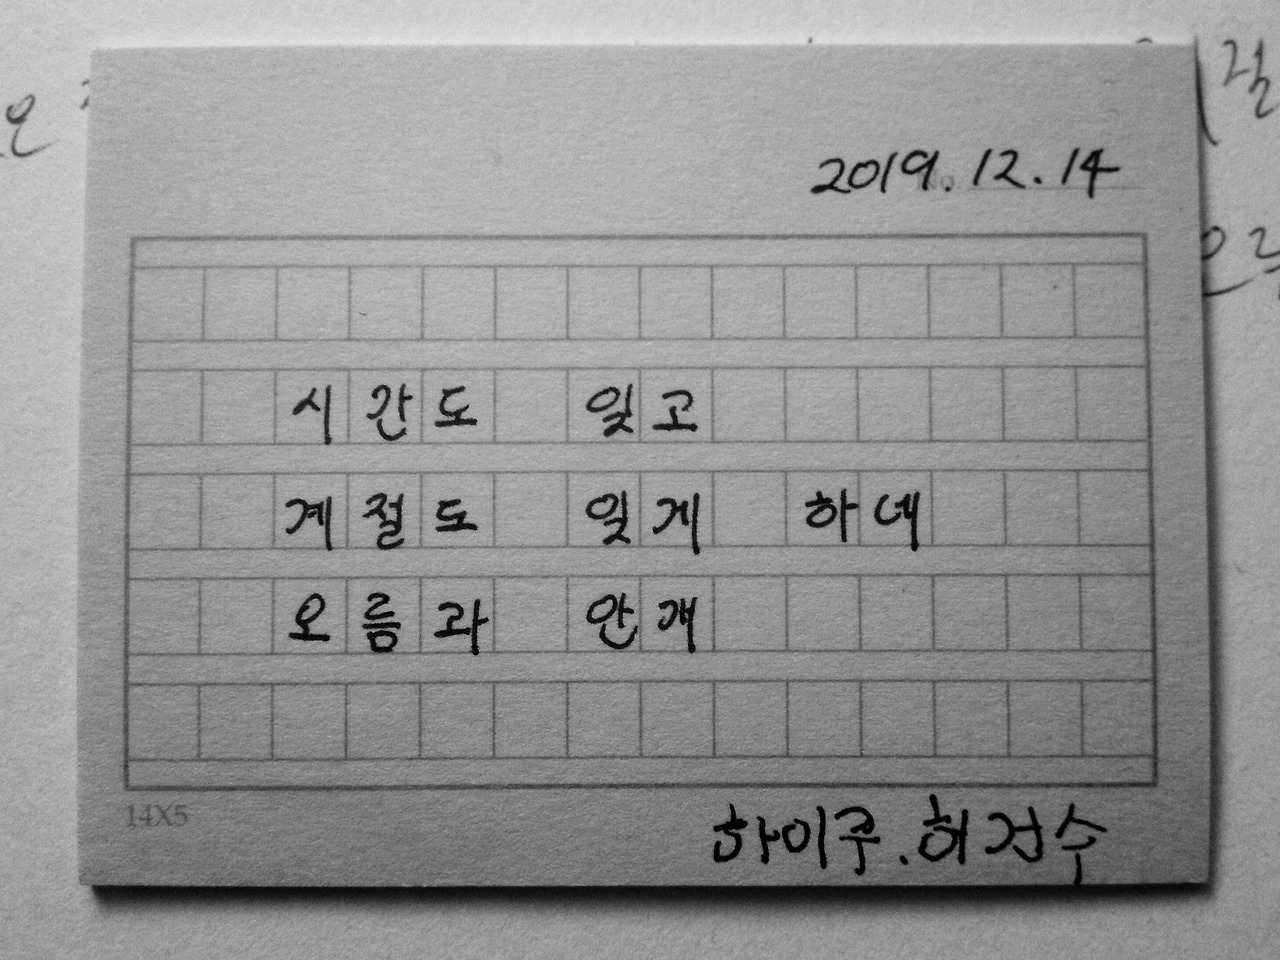 2019.12.14
시간도 잊고
계절도 잊게 하네
오름과 안개
14X5
하이쿠.허건수